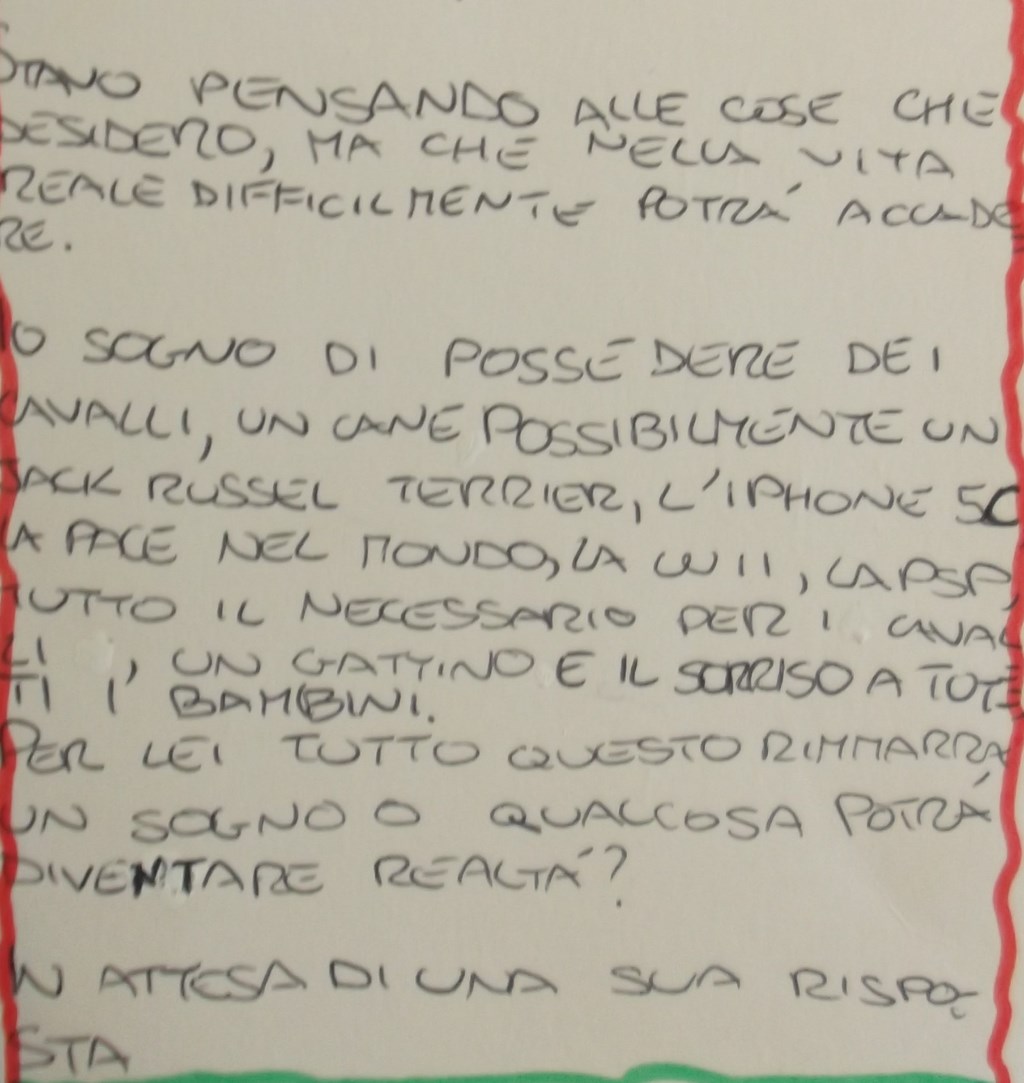 STANO PENSANDO ALLE COSE CHE
DESIDERO, MA CHE NELLA VITA
REALE DIFFICILMENTE POTRÁ ACCADE
RE.
IO SOGNO DI POSSEDERE DEI
CAVALLI, UN CANE POSSIBILMENTE UN
JACK RUSSEL TERRIER, L'IPHONE 5C
LA PACE NEL MONDO, LA WII, LA PSP,
TUTTO IL NECESSARIO PER I CAVAL
LI, UN GATTINO E IL SORRISO A TUT
TI I BAMBINI.
PER LEI TUTTO QUESTO RIMMARRÁ
UN SOGNO O QUALCOSA POTRÁ
DIVENTARE REALTÁ?
IN ATTESA DI UNA SUA RISPO-
STA